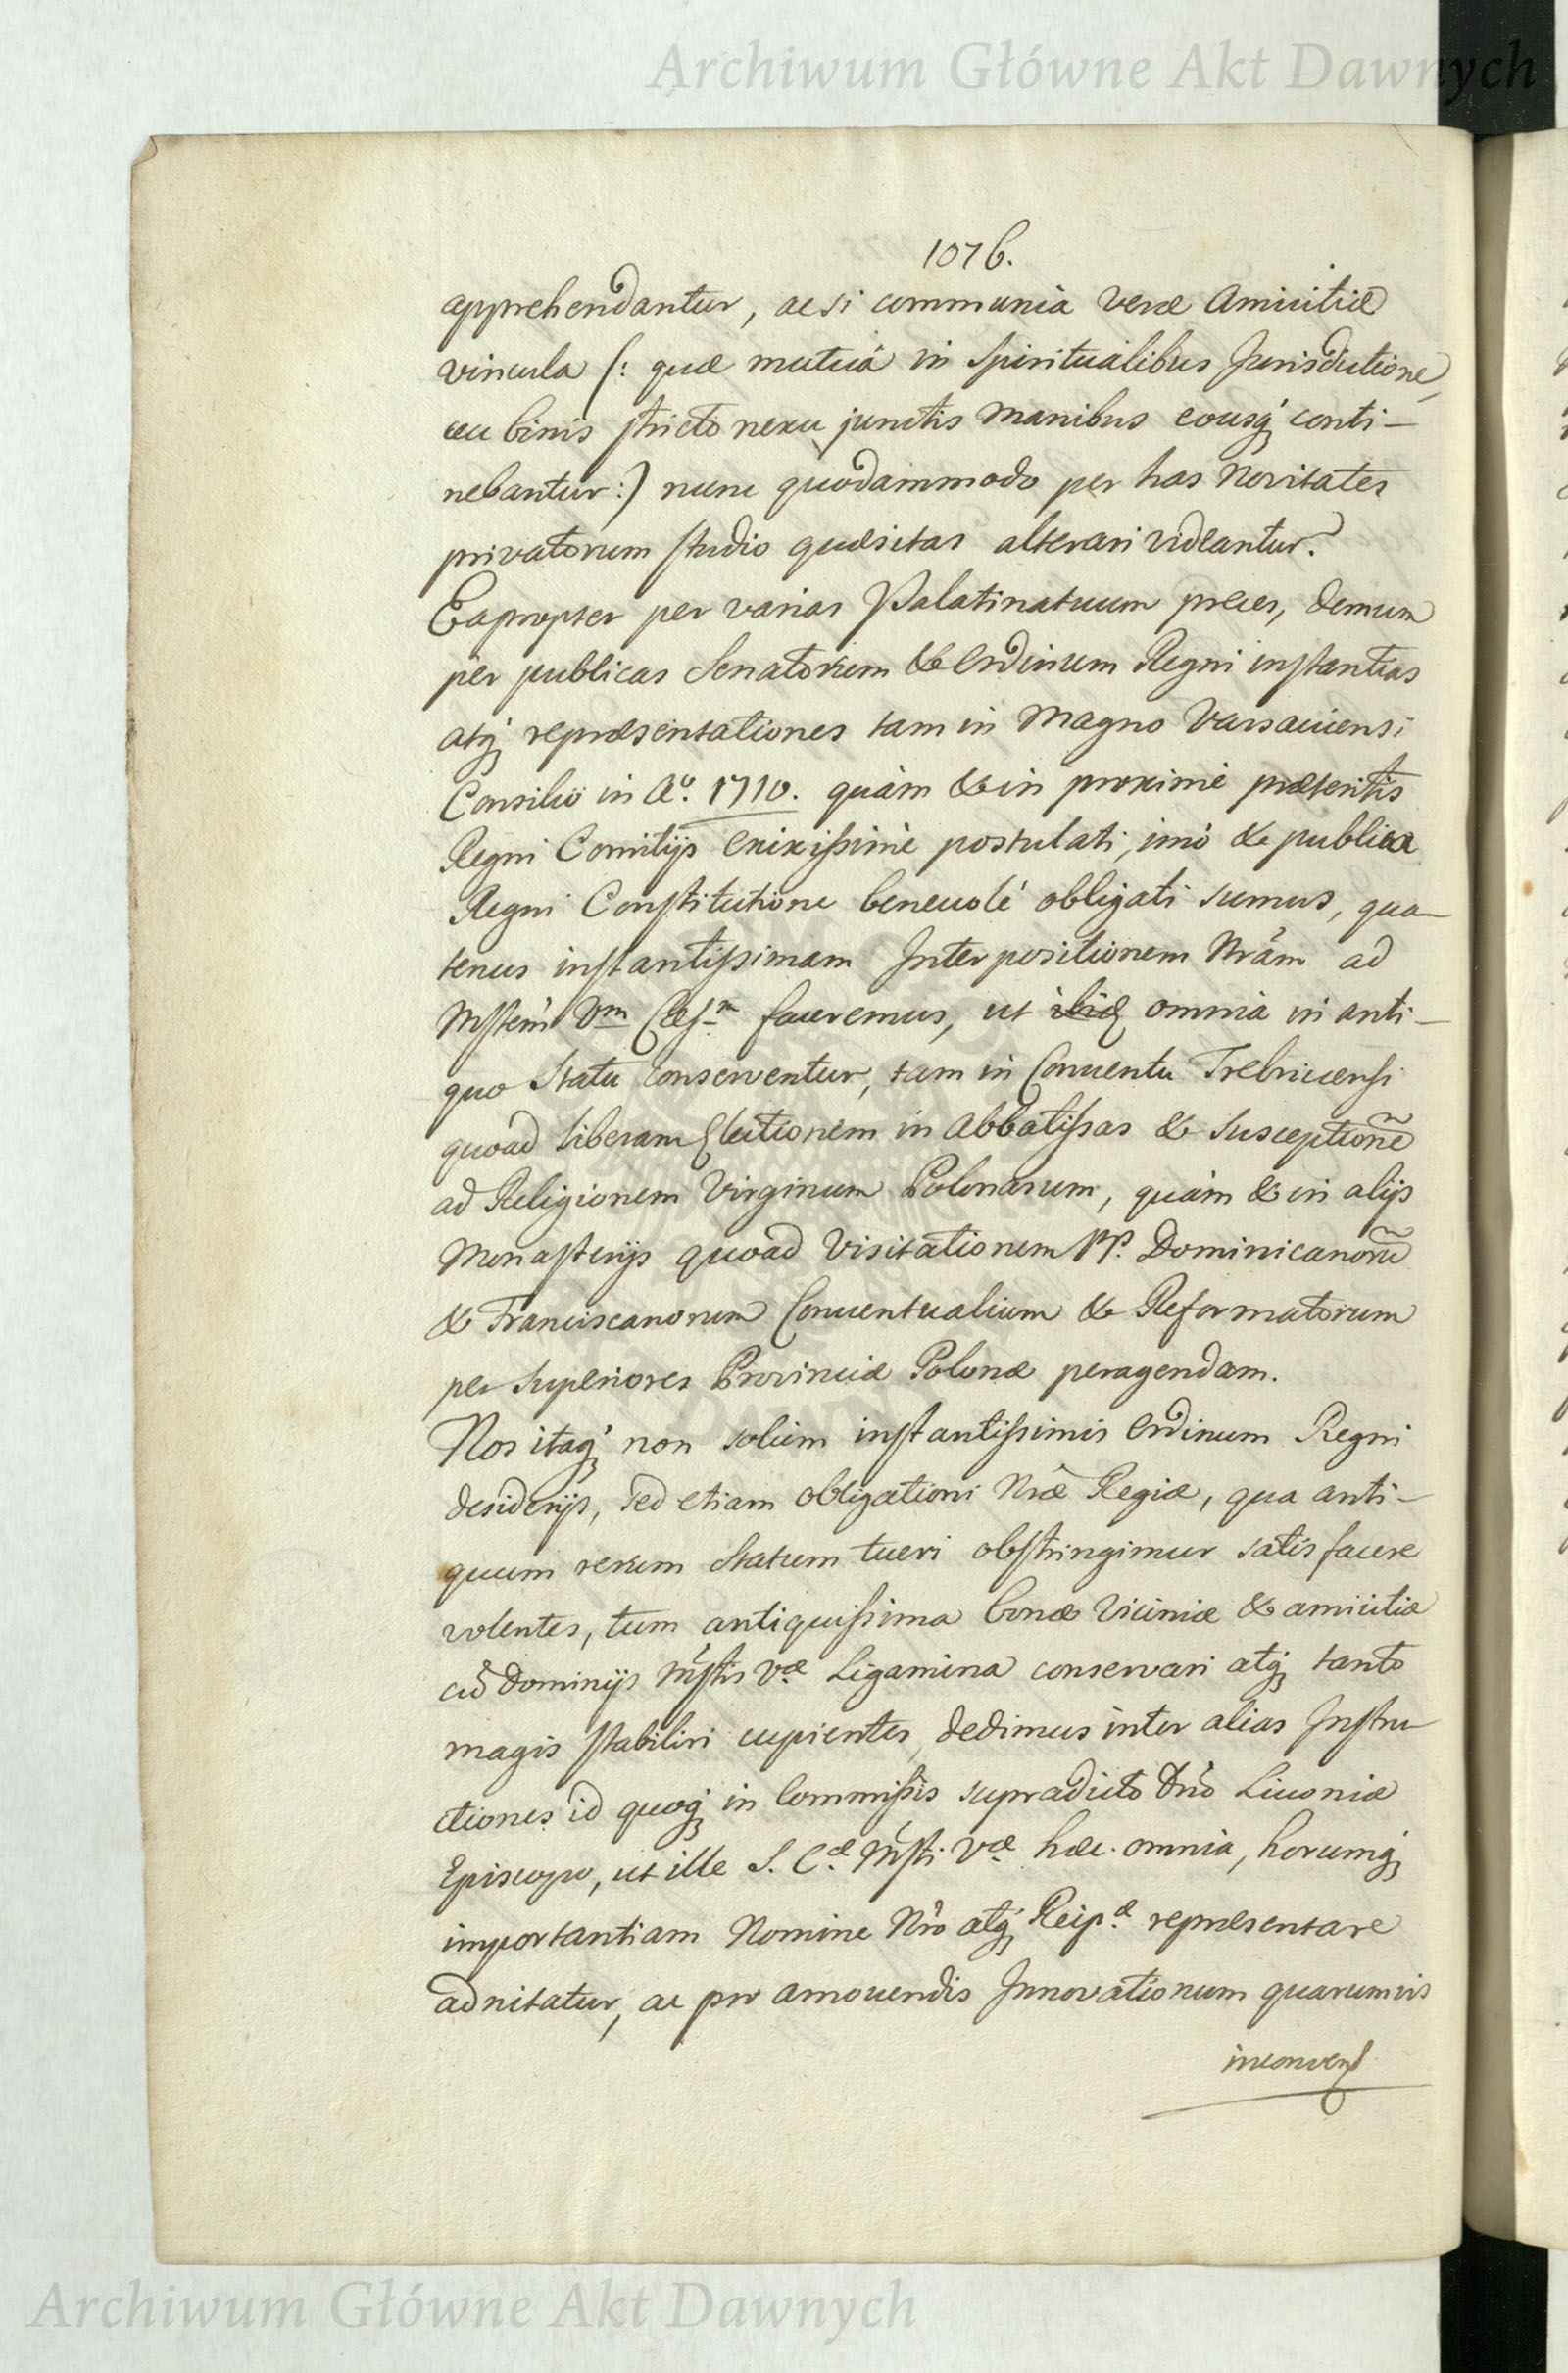 Archiwum Główne Akt Dawnych
1076.
apprehendantur, ac si communia veræ Amicitiæ
vincula (: quæ mutuâ in Spiritualibus Jurisdictione,
ceu binis stricto nexu junctis manibus eousq́ conti-
nebantur :) nunc quodammodo per has Novitates
privatorum studio quæsitas alterari videantur.
Eapropter per varias Palatinatuum preces, demum
per publicas Senatorum & Ordinum Regni instantias
atq́ repræsentationes tam in Magno Varsaviensi
Consilio in Aº. 1710. quàm & in proximè præteritis
Regni Comitijs enixissimè postulati, imò & publica
Regni Constitutione benevolé obligati sumus, qua-
tenus instantissimam Interpositionem Nrãm ad
Mstem Vm Cæs. faceremus, ut omnia in anti-
quo Statu conserventur, tam in Conventu Trebnicensi
quoad liberam Electionem in Abbatissas & Susceptionẽ
ad Religionem Virginum Polonarum, quàm & in alijs
Monasterijs quoad Visitationem PP. Dominicanorũ
& Franciscanorum Conventualium & Reformatorum
per Superiores Provinciæ Polonæ peragendam.
Nos itaq́ non solùm instantissimis Ordinum Regni
desiderijs, sed etiam obligationi Nræ Regiæ, qua anti-
quum rerum Statum tueri obstringimur satisfacere
volentes, tum antiquissima bonæ Viciniæ & amicitiæ
cũ Dominijs Mstis Væ Ligamina conservari atq́ tanto
magis stabiliri cupientes, dedimus inter alias Instru-
ctiones id quoq́ in Commissis supradicto Dno Livoniæ
Episcopo, ut ille S. Cæ Msti Væ hæc omnia, horumq́
importantiam Nomine Nro atq́ Reipæ repræsentare
adnitatur, ac pro amovendis Innovationum quarumvis
inconven
Archiwum Główne Akt Dawnych